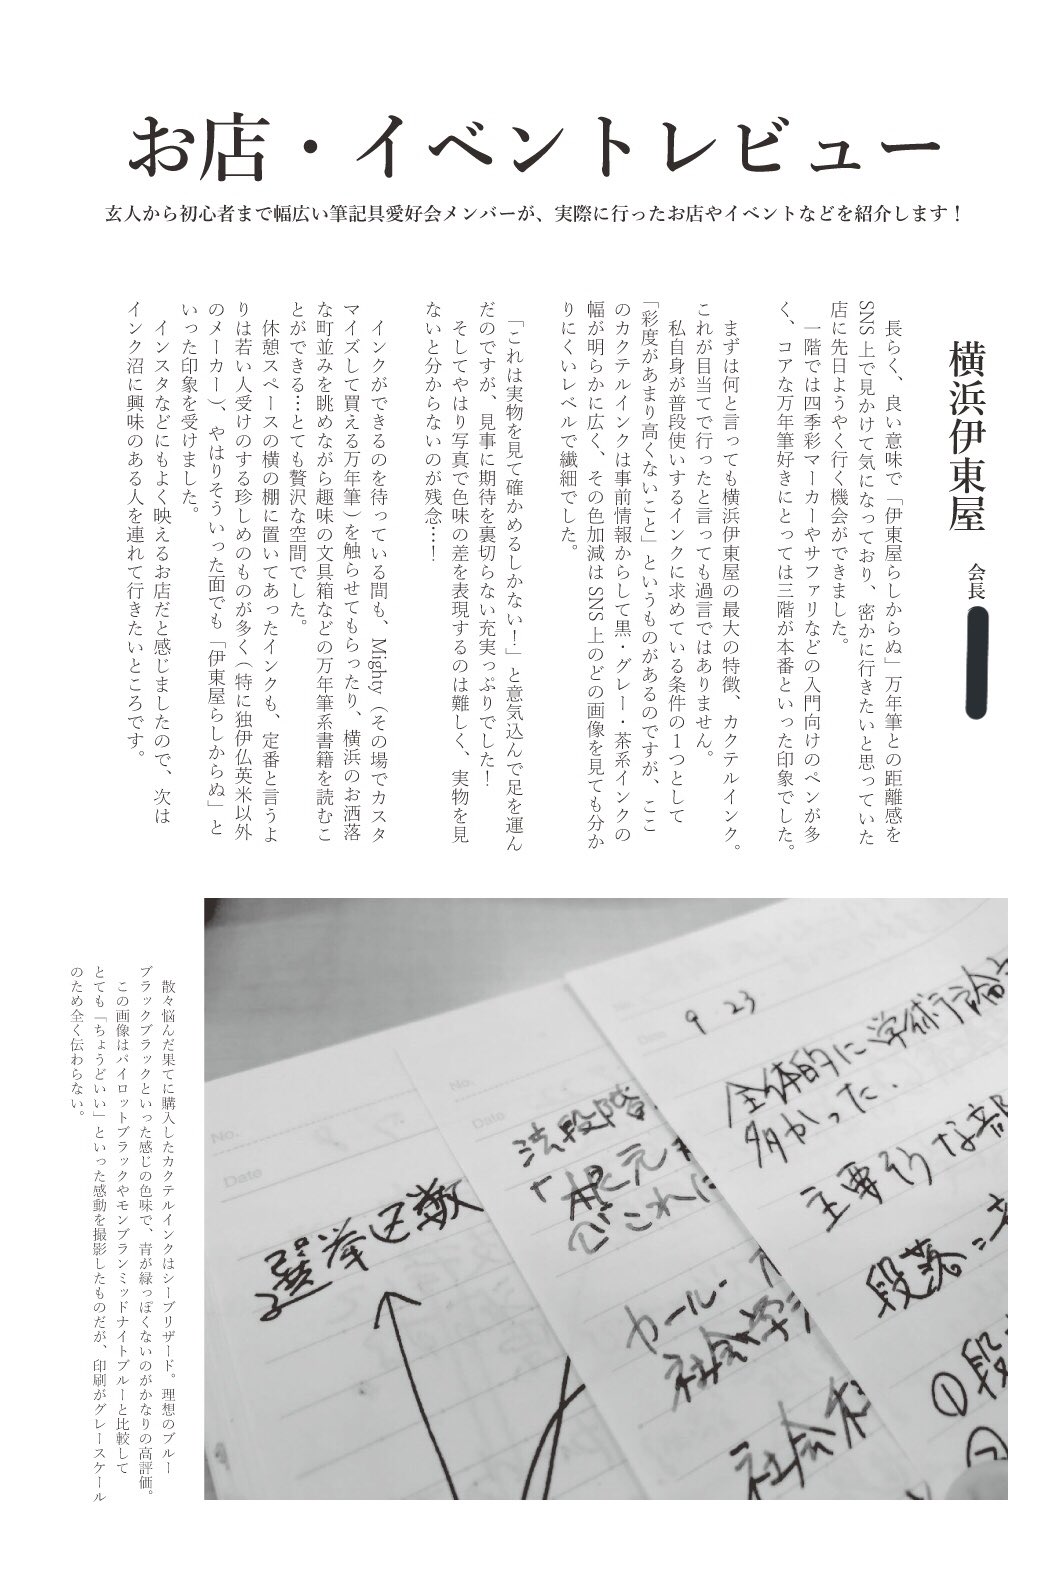 お店・イベントレビュー
玄人から初心者まで幅広い筆記具愛好会メンバーが、実際に行ったお店やイベントなどを紹介します！
横浜伊東屋
会長
長らく、良い意味で「伊東屋らしからぬ」万年筆との距離感を
SNS上で見かけて気になっており、密かに行きたいと思っていた
店に先日ようやく行く機会ができました。
一階では四季彩マーカーやサファリなどの入門向けのペンが多
く、コアな万年筆好きにとっては三階が本番といった印象でした。
まずは何と言っても横浜伊東屋の最大の特徴、カクテルインク。
これが目当てで行ったと言っても過言ではありません。
私自身が普段使いするインクに求めている条件の1つとして
「彩度があまり高くないこと」というものがあるのですが、ここ
のカクテルインクは事前情報からして黒・グレー・茶系インクの
幅が明らかに広く、その色加減はSNS上のどの画像を見ても分か
りにくいレベルで繊細でした。
「これは実物を見て確かめるしかない！」と意気込んで足を運ん
だのですが、見事に期待を裏切らない充実っぷりでした！
そしてやはり写真で色味の差を表現するのは難しく、実物を見
ないと分からないのが残念…！
インクができるのを待っている間も、Mighty（その場でカスタ
マイズして買える万年筆）を触らせてもらったり、横浜のお洒落
な町並みを眺めながら趣味の文具箱などの万年筆系書籍を読むこ
とができる…とても贅沢な空間でした。
休憩スペースの横の棚に置いてあったインクも、定番と言うよ
りは若い人受けのする珍しめのものが多く（特に独伊仏英米以外
のメーカー）、やはりそういった面でも「伊東屋らしからぬ」と
いった印象を受けました。
インスタなどにもよく映えるお店だと感じましたので、次は
インク沼に興味のある人を連れて行きたいところです。
No.
Date
選挙区数
No.
Date
法段階
根元
これに
カール・
社会学
社会
9 23
Date
全体的に学術
多かった.
主要そうな部
段落
①段
散々悩んだ果てに購入したカクテルインクはシーブリザード。理想のブルー
ブラックブラックといった感じの色味で、青が緑っぽくないのがかなりの高評価。
この画像はパイロットブラックやモンブランミッドナイトブルーと比較して
とても「ちょうどいい」といった感動を撮影したものだが、印刷がグレースケール
のため全く伝わらない。